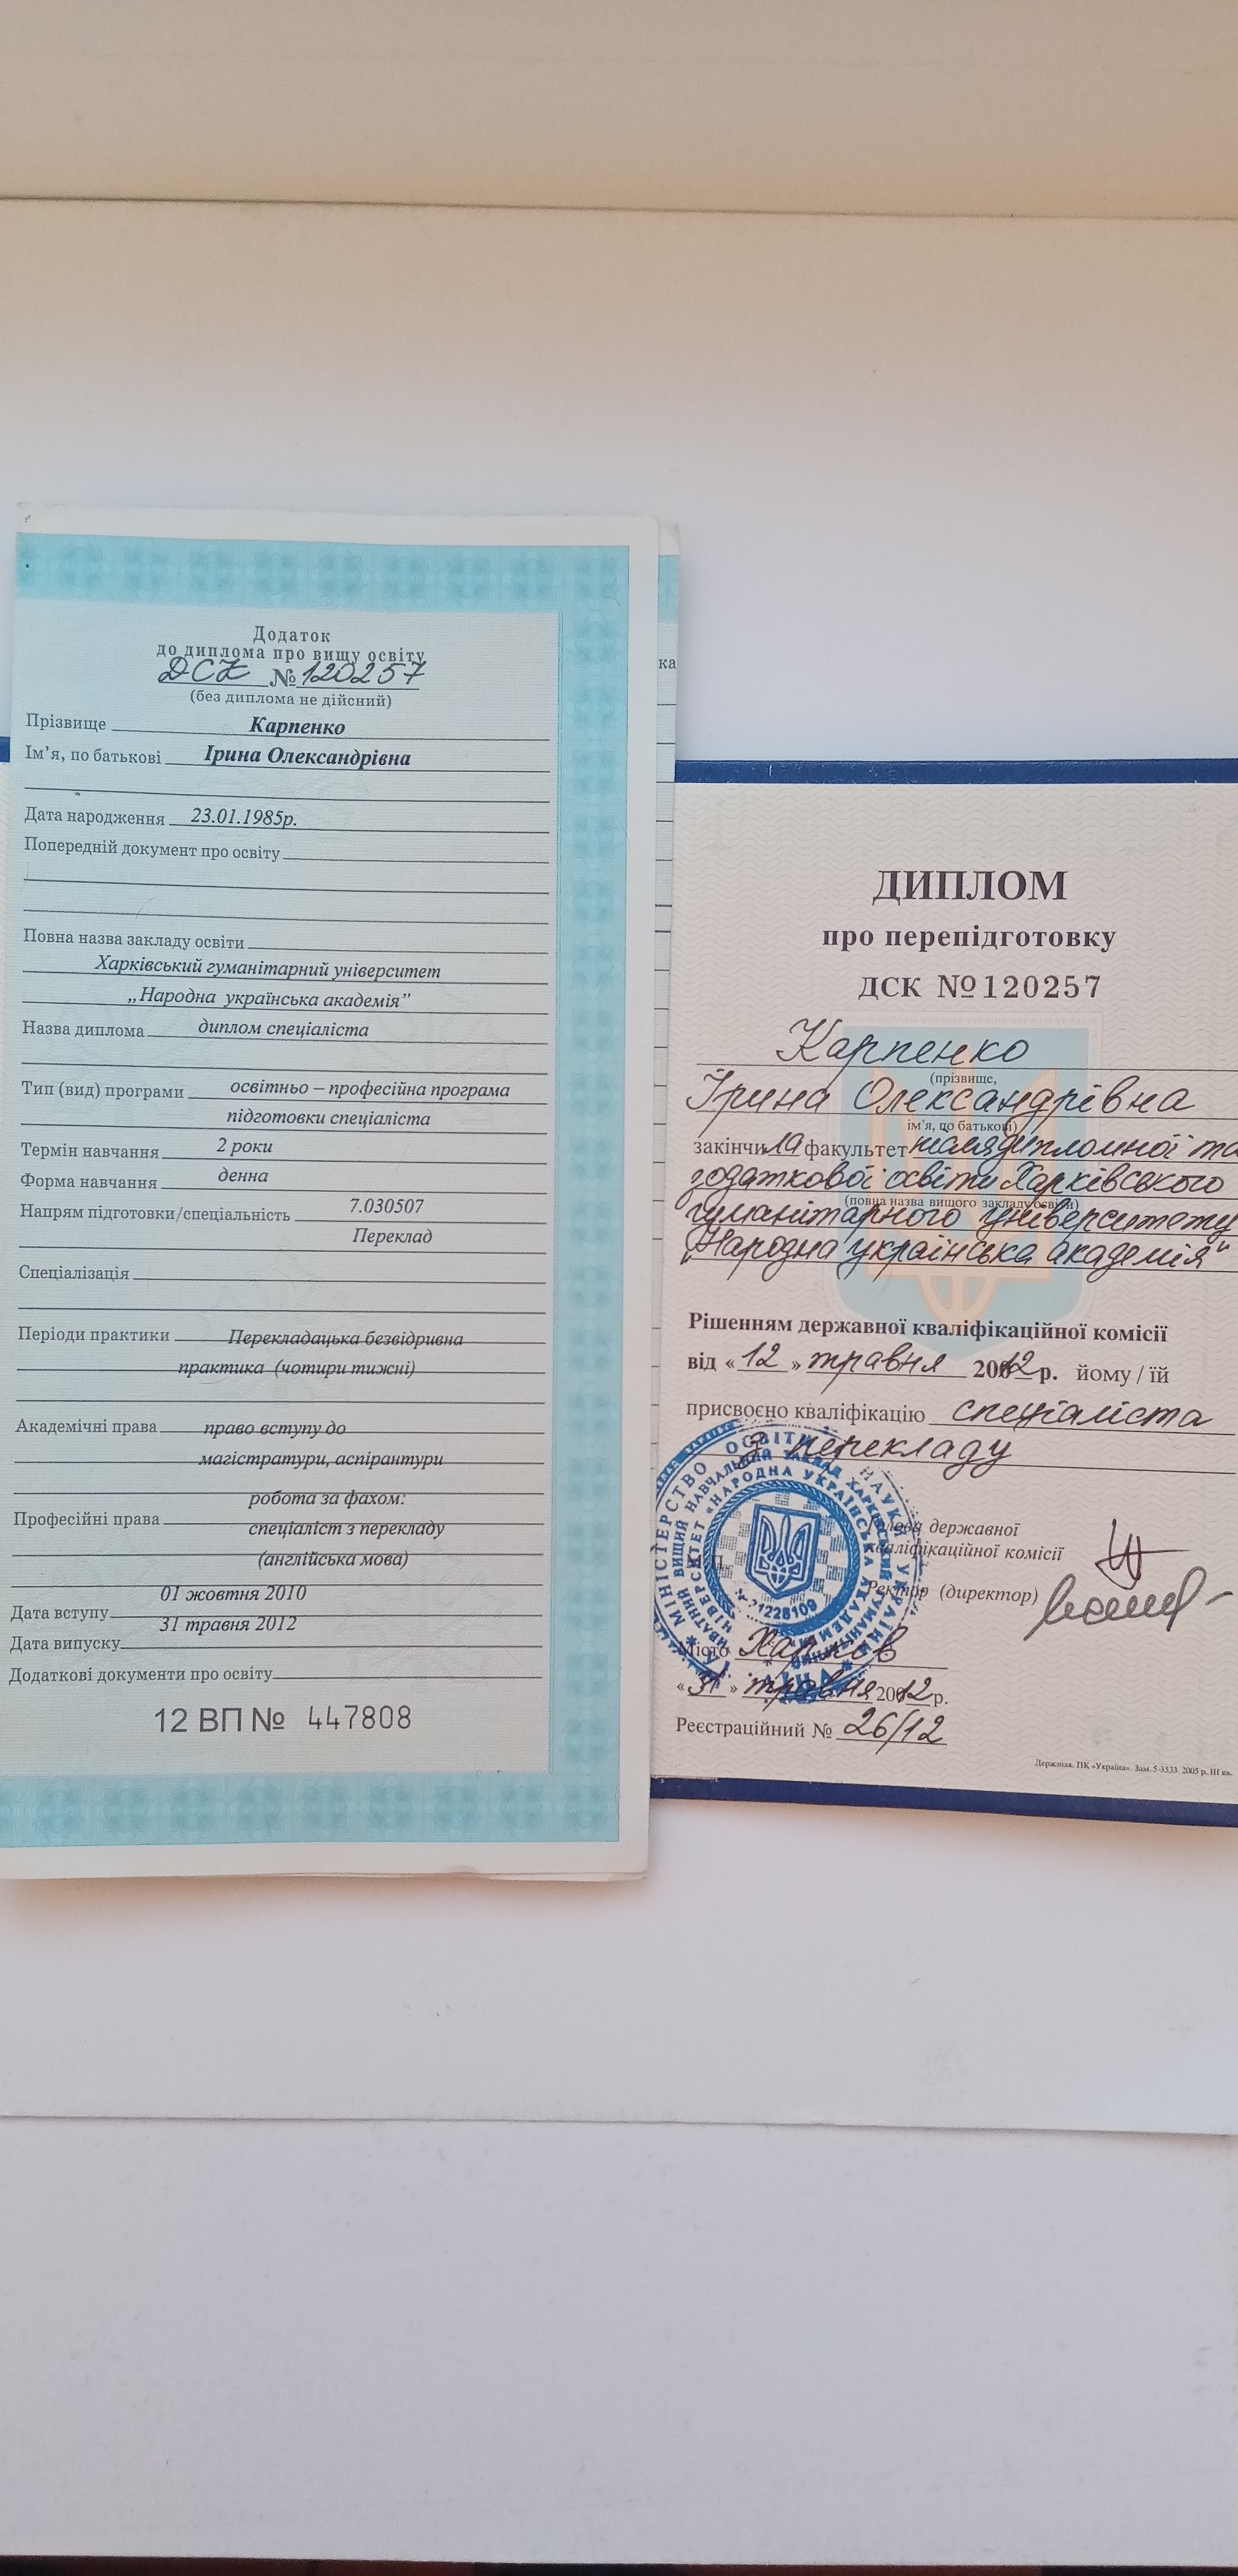 Додаток
до диплома про вищу освіту
ДСК № 120257
(без диплома не дійсний)
Прізвище Карпенко
Ім'я, по батькові Ірина Олександрівна
Дата народження 23.01.1985р.
Попередній документ про освіту
Повна назва закладу освіти
Харківський гуманітарний університет
„Народна українська академія”
Назва диплома диплом спеціаліста
Тип (вид) програми освітньо – професійна програма
підготовки спеціаліста
Термін навчання 2 роки
Форма навчання денна
Напрям підготовки/спеціальність 7.030507
Переклад
Спеціалізація
Періоди практики Перекладацька безвідривна
практика (чотири тижні)
Академічні права право вступу до
магістратури, аспірантури
робота за фахом:
Професійні права спеціаліст з перекладу
(англійська мова)
01 жовтня 2010
Дата вступу
31 травня 2012
Дата випуску
Додаткові документи про освіту
12 ВП № 447808
ка
ДИПЛОМ
про перепідготовку
ДСК №120257
Карпенко
(прізвище,
Ірина Олександрівна
ім'я, по батькові)
закінчила факультет післядипломної та
додаткової освіти Харківського
(повна назва вищого закладу освіти)
гуманітарного університету
„Народна українська академія“
Рішенням державної кваліфікаційної комісії
від « 12 » травня 2012 р. йому / їй
присвоєно кваліфікацію спеціаліста
з перекладу
Голова державної
кваліфікаційної комісії
М.П.
Ректор (директор)
Місто Харків
« 31 » травня 2012 р.
Реєстраційний № 26/12
Держзнак. ПК «Україна». Зам. 5-3533. 2005 р. III кв.
МІНІСТЕРСТВО ОСВІТИ І НАУКИ УКРАЇНИ
«НАРОДНА УКРАЇНСЬКА АКАДЕМІЯ»